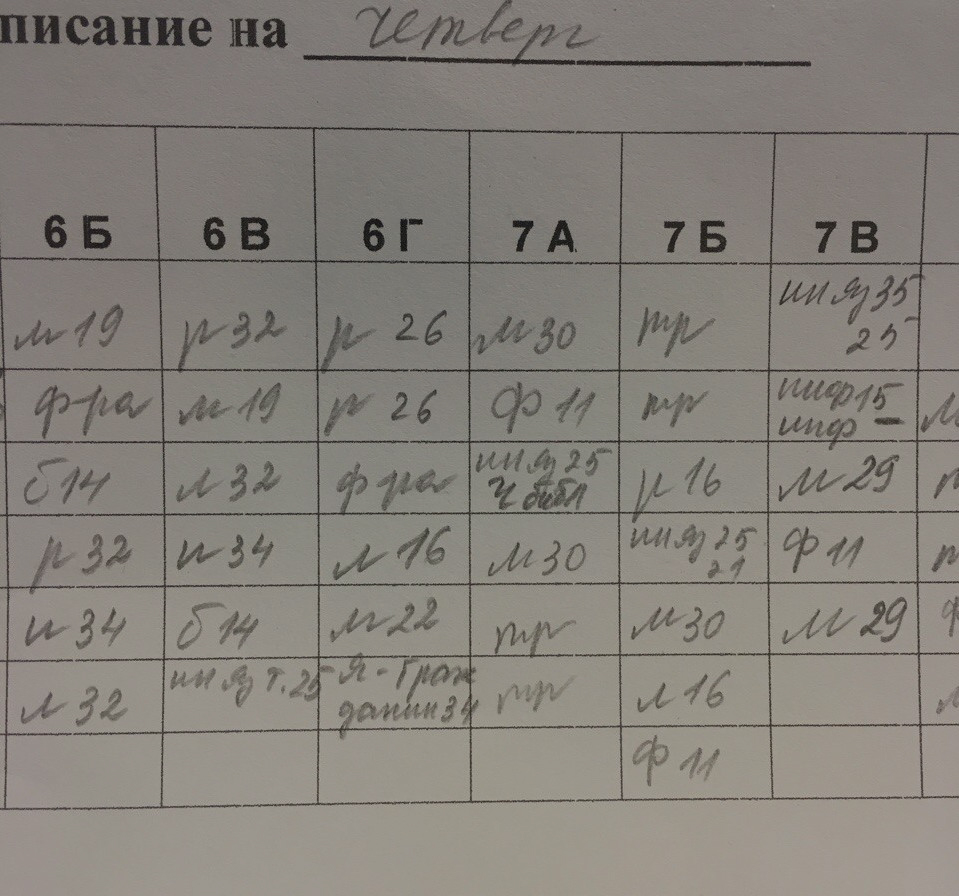 писание на четверг
6 Б 6 В 6 Г 7 А 7 Б 7 В
м 19 р 32 р 26 м 30 тр ин яз 35
25
ф-ра м 19 р 26 Ф 11 тр инф 15
инф –
б 14 л 32 ф-ра ин яз 25 р 16 м 29
Ч библ
р 32 и 34 л 16 м 30 ин яз 25 Ф 11
21
и 34 б 14 м 22 тр м 30 м 29
л 32 ин яз т. 25 Я - Граж тр л 16
данин 34
Ф 11